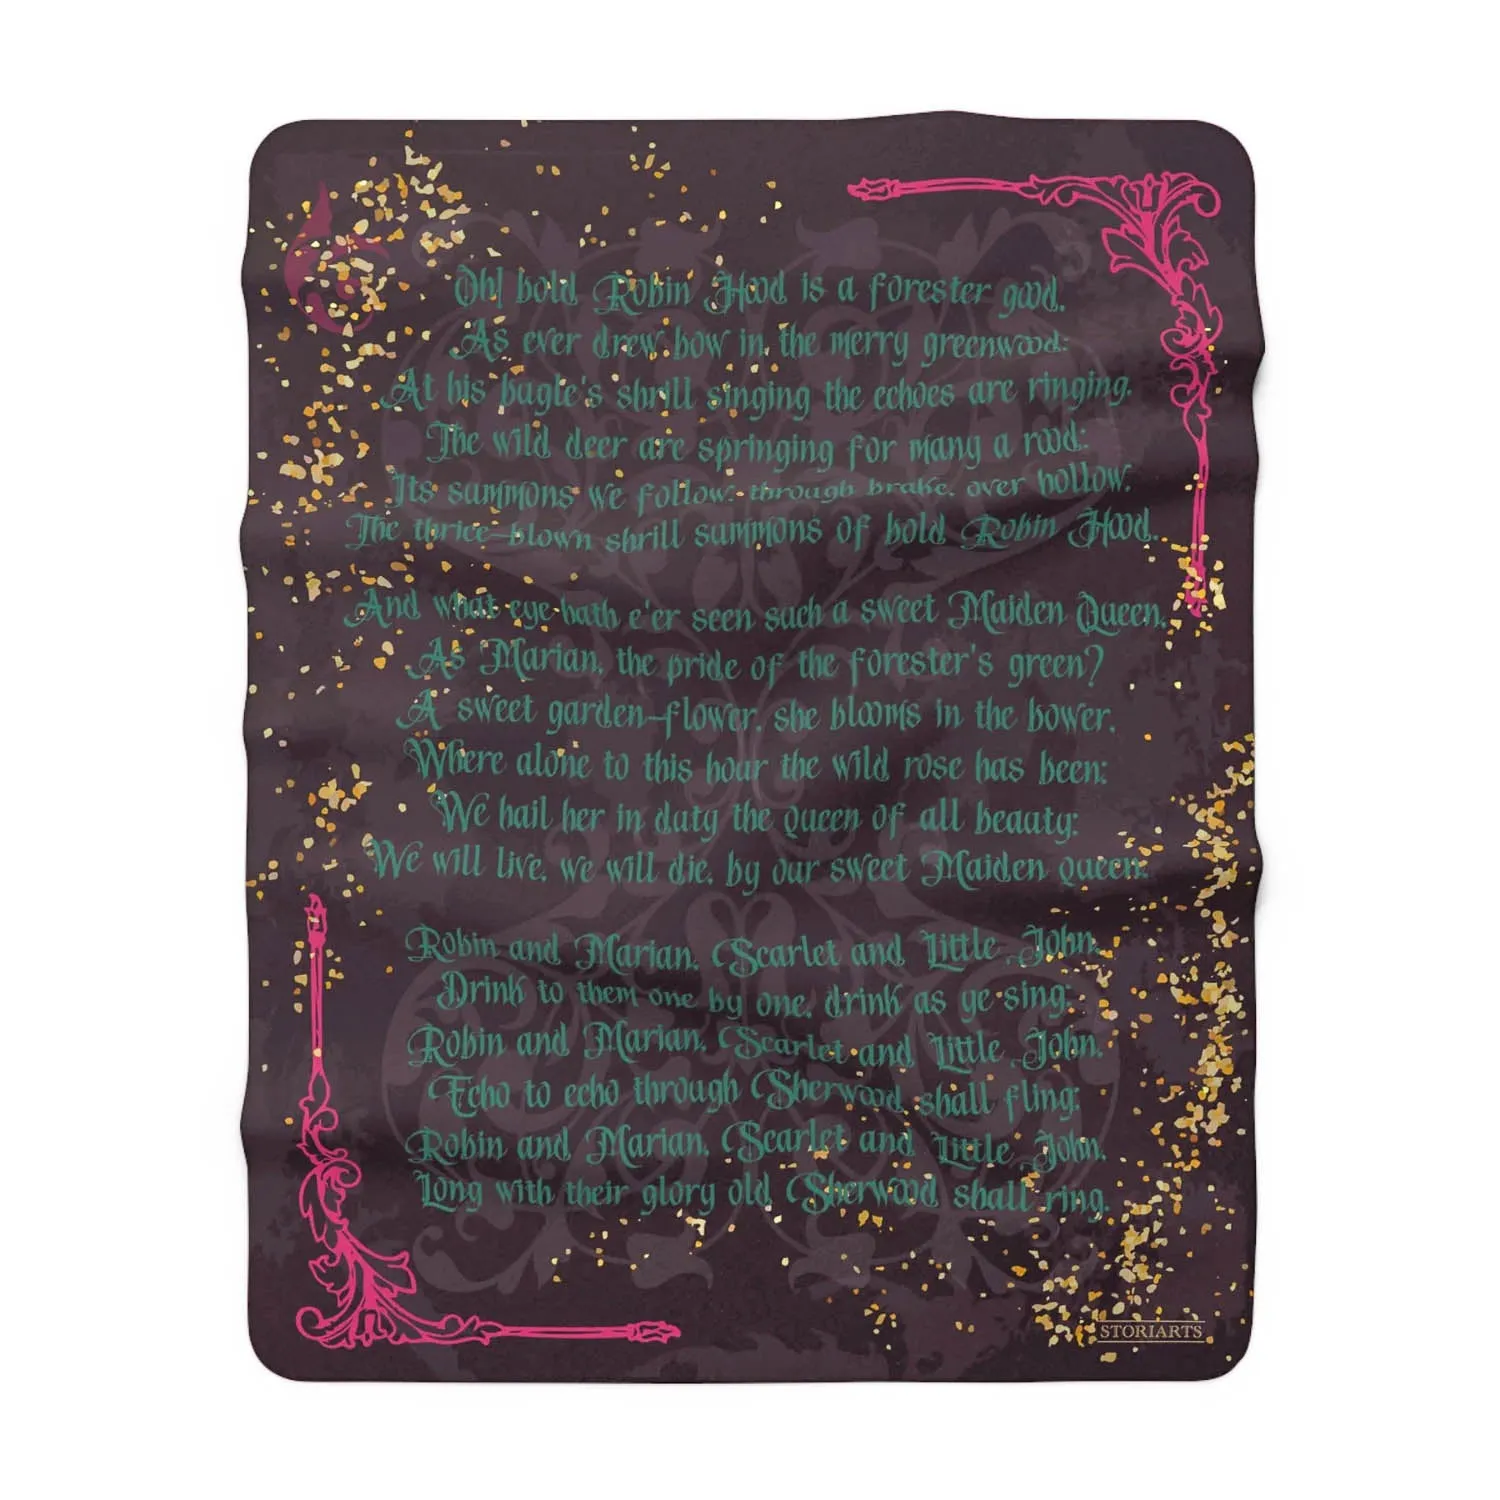 Oh! bold Robin Hood is a forester good,
As ever drew bow in the merry greenwood:
At his bugle's shrill singing the echoes are ringing,
The wild deer are springing for many a rood:
Its summons we follow, through brake, over hollow,
The thrice-blown shrill summons of bold Robin Hood.
And what eye hath e'er seen such a sweet Maiden Queen,
As Marian, the pride of the forester's green?
A sweet garden-flower, she blooms in the bower,
Where alone to this hour the wild rose has been:
We hail her in duty the queen of all beauty:
We will live, we will die, by our sweet Maiden queen.
Robin and Marian, Scarlet and Little John,
Drink to them one by one, drink as ye sing:
Robin and Marian, Scarlet and Little John,
Echo to echo through Sherwood shall fling:
Robin and Marian, Scarlet and Little John,
Long with their glory old Sherwood shall ring.
STORIARTS